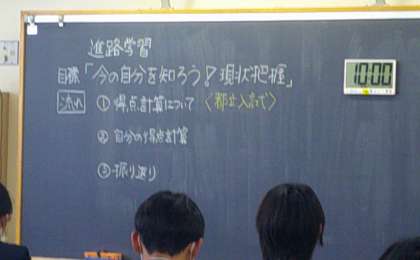 進路学習
目標「今の自分を知ろう!現状把握」
流れ ①得点計算について〈都立入試で〉
②自分の得点計算
③振り返り
10:00